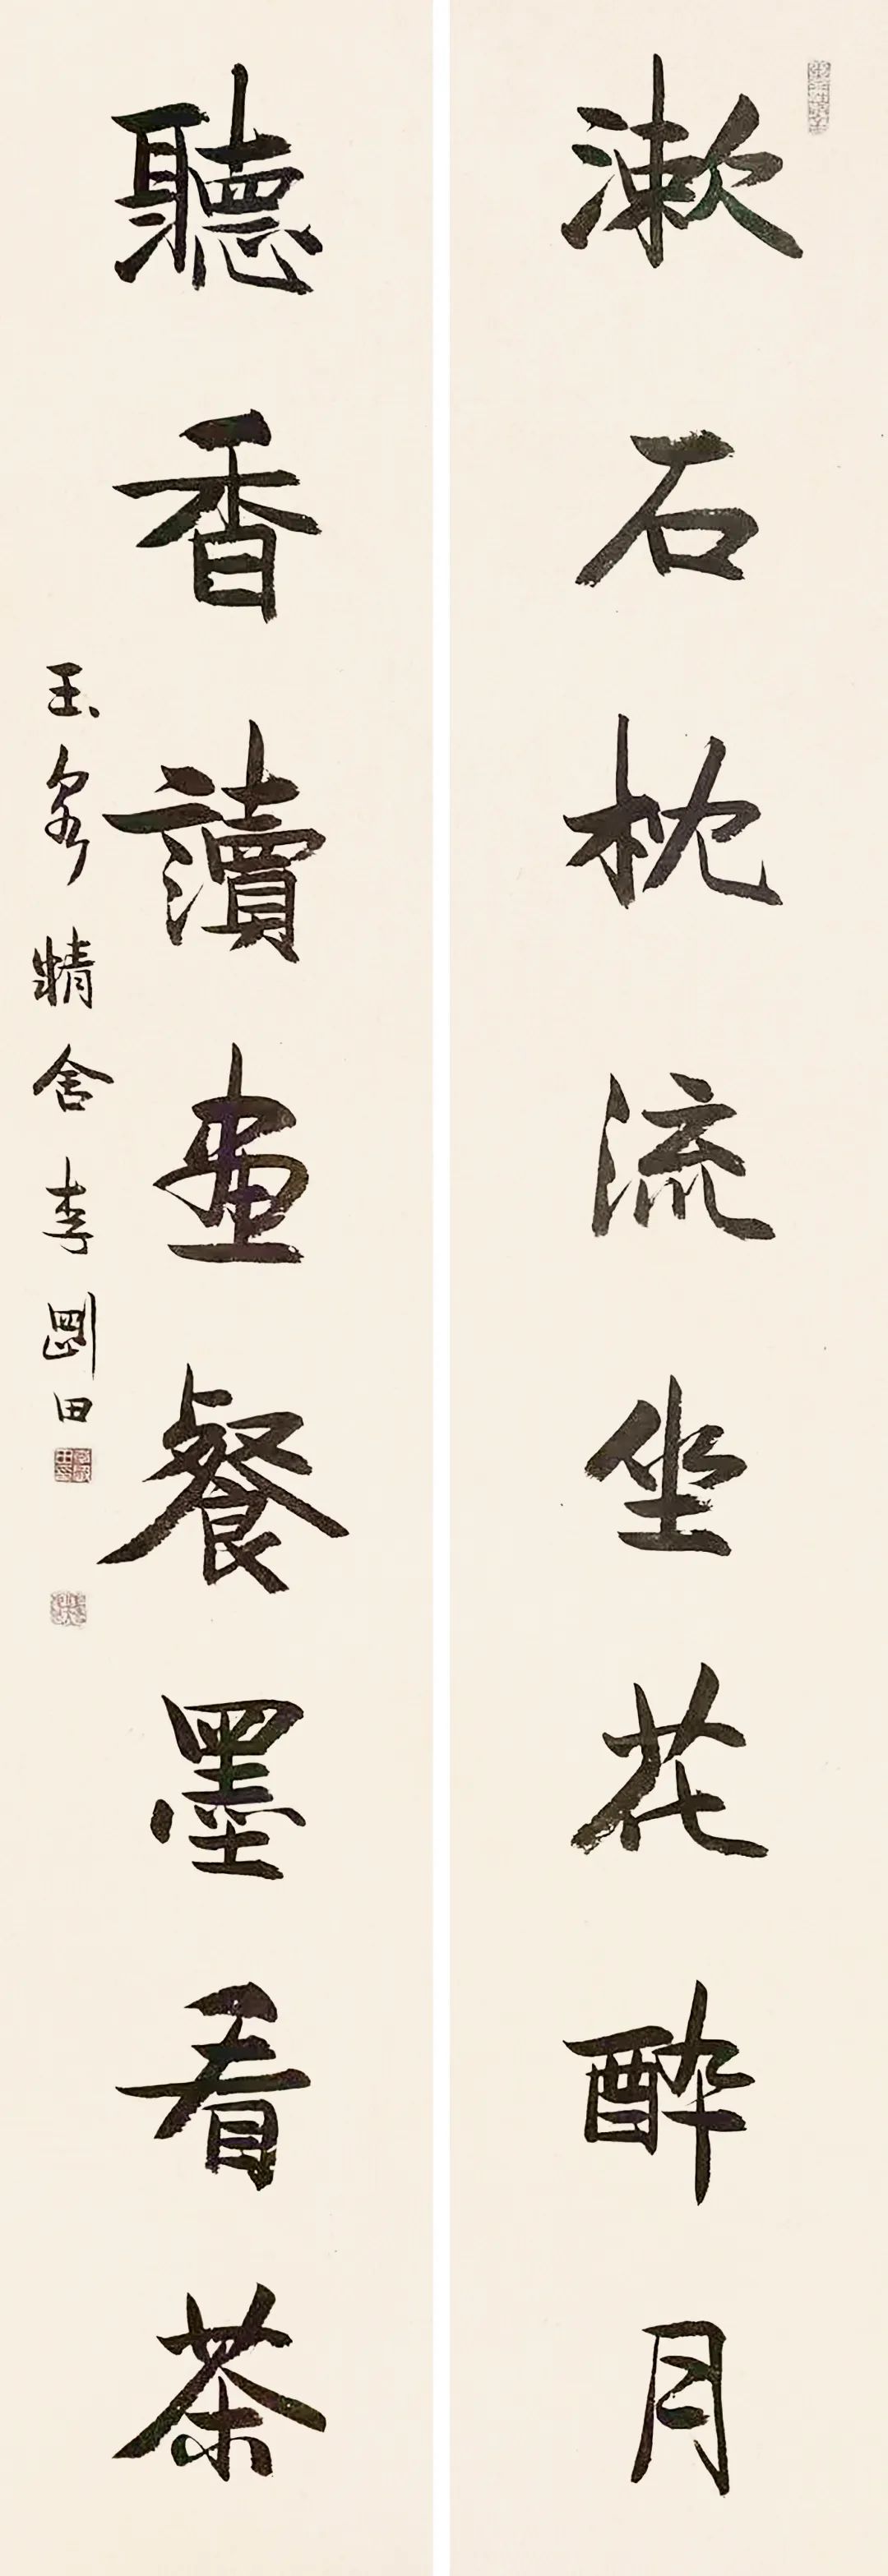 漱石枕流坐花醉月
聽香讀畫餐墨看茶
玉泉精舍李剛田